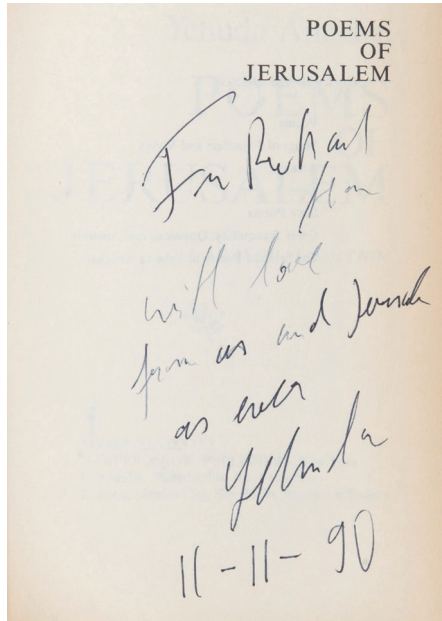 POEMS
OF
JERUSALEM
For Richard
from
with love
from us and
as ever
Yehuda
11-11-90